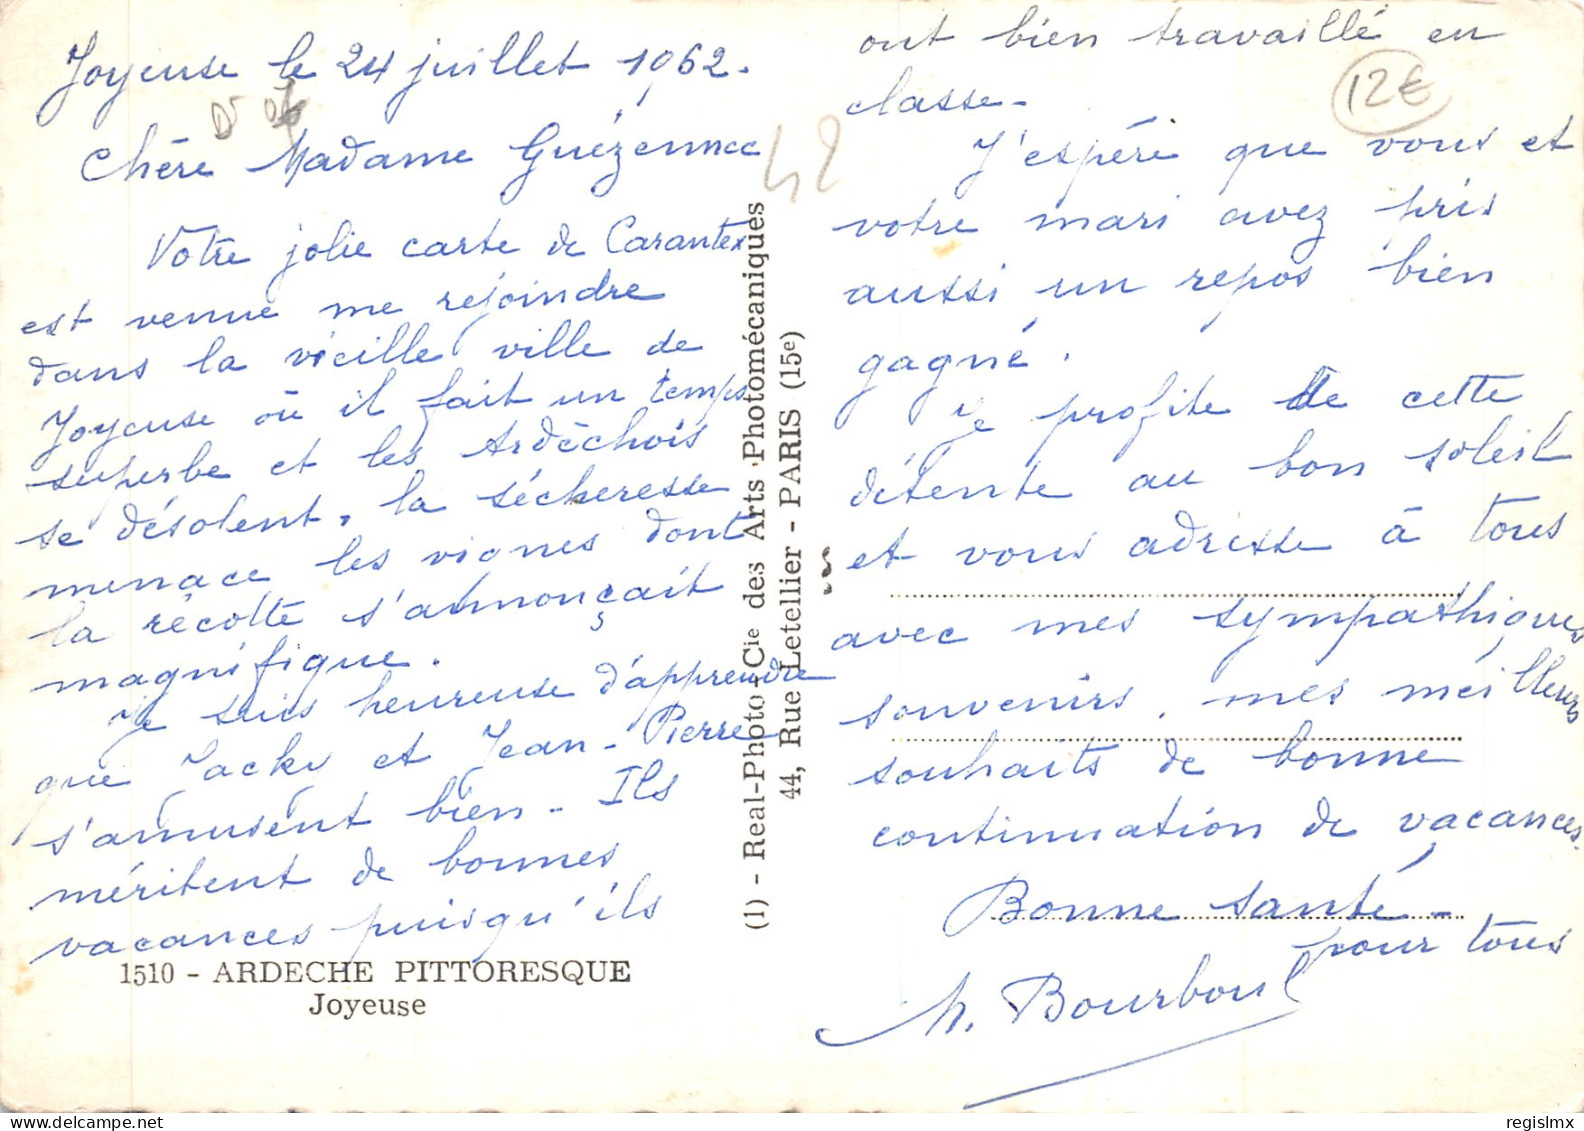 Joyeuse le 24 juillet 1962.
Chère Madame Guézennec
Votre jolie carte de Carantec
est venue me rejoindre
dans la vieille ville de
Joyeuse où il fait un temps
superbe et les Ardèchois
se désolent, la sécheresse
menace les vignes dont
la récolte s'annonçait
magnifique.
Je suis heureuse d'apprendre
que Jacky et Jean-Pierre
s'amusent bien - Ils
méritent de bonnes
vacances puisqu'ils
1510 - ARDECHE PITTORESQUE
Joyeuse
(1) - Real-Photo - Cie des Arts Photomécaniques
44, Rue Letellier - PARIS (15e)
42
12€
ont bien travaillé en
classe -
J'espère que vous et
votre mari avez pris
aussi un repos bien
gagné.
Je profite de cette
détente au bon soleil
et vous adresse à tous
avec mes sympathiques
souvenirs, mes meilleurs
souhaits de bonne
continuation de vacances.
Bonne santé -
pour tous
M. Bourboul
regislmx